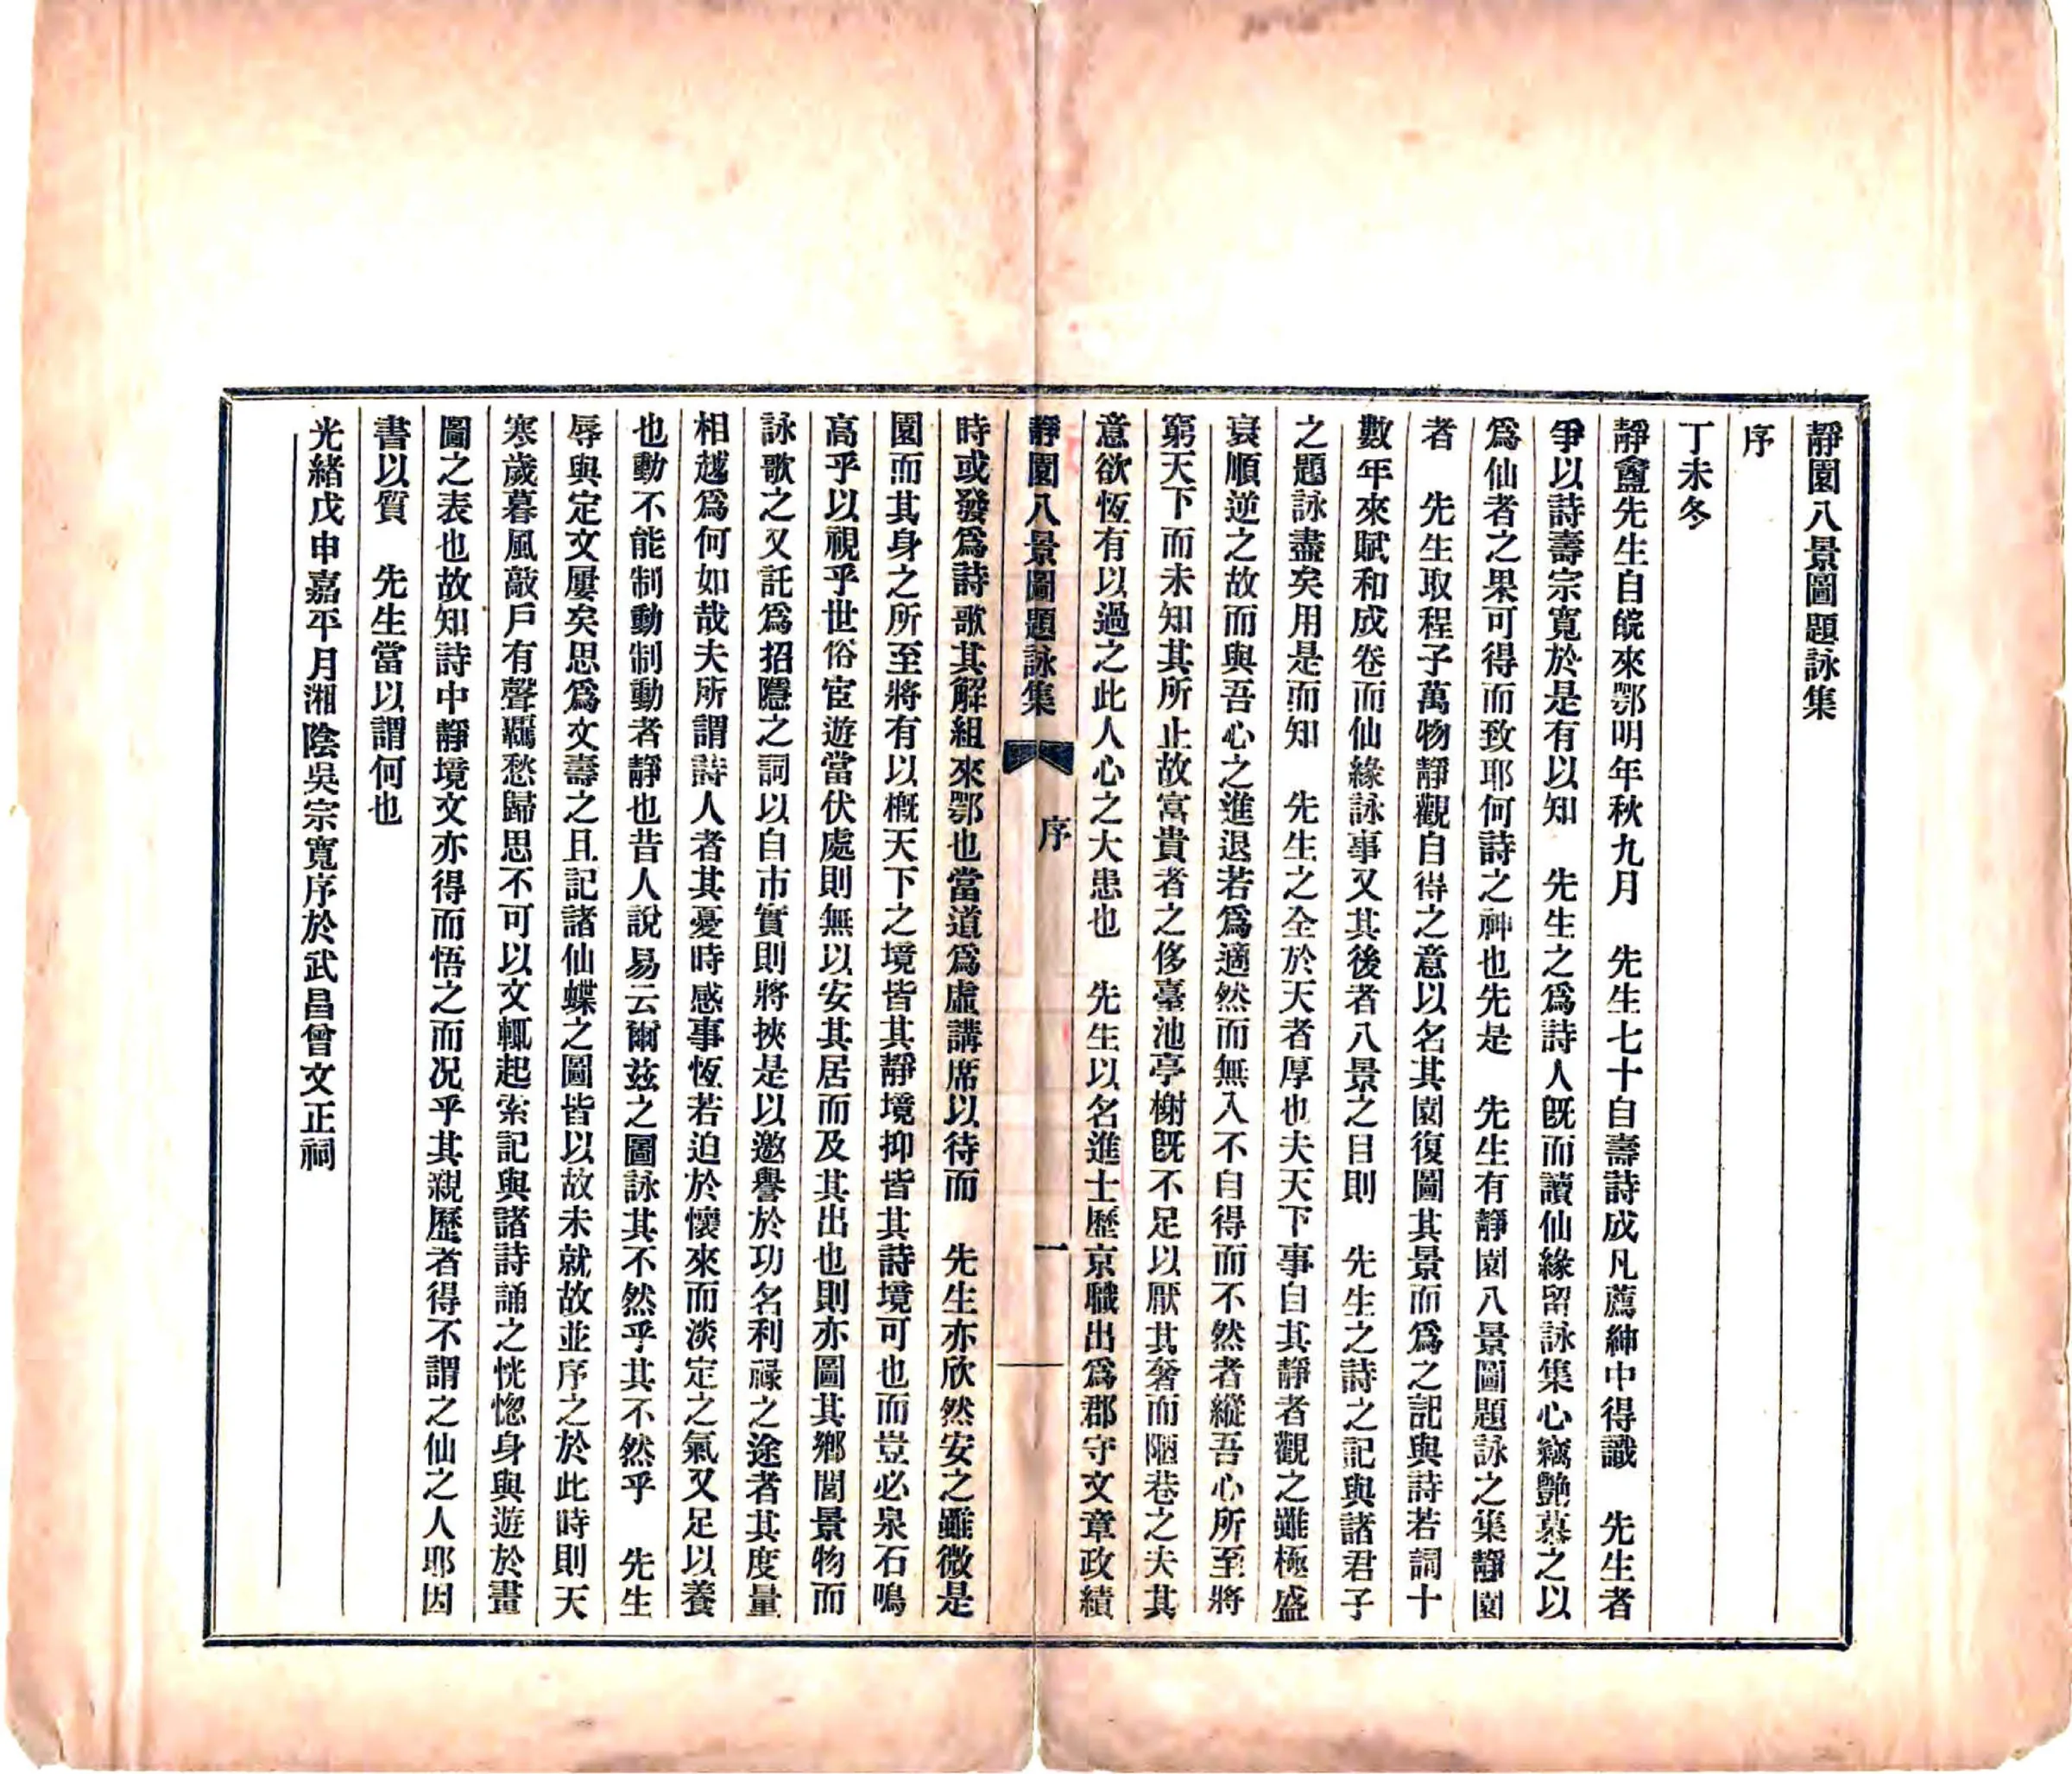 靜園八景圖題詠集
序
丁未冬
靜盦先生自皖來鄂明年秋九月　先生七十自壽詩成凡薦紳中得識　先生者
爭以詩壽宗寬於是有以知　先生之爲詩人旣而讀仙緣留詠集心竊艷慕之以
爲仙者之果可得而致耶何詩之神也先是　先生有靜園八景圖題詠之集靜園
者　先生取程子萬物靜觀自得之意以名其園復圖其景而爲之記與詩若詞十
數年來賦和成卷而仙緣詠事又其後者八景之目則　先生之詩之記與諸君子
之題詠盡矣用是而知　先生之全於天者厚也夫天下事自其靜者觀之雖極盛
衰順逆之故而與吾心之進退若爲適然而無入不自得而不然者縱吾心所至將
窮天下而未知其所止故富貴者之侈臺池亭榭旣不足以厭其奢而陋巷之夫其
意欲恆有以過之此人心之大患也　先生以名進士歷京職出爲郡守文章政績
靜園八景圖題詠集　序　一
時或發爲詩歌其解組來鄂也當道爲虛講席以待而　先生亦欣然安之雖微是
園而其身之所至將有以概天下之境皆其靜境抑皆其詩境可也而豈必泉石鳴
高乎以視乎世俗宦遊當伏處則無以安其居而及其出也則亦圖其鄉閭景物而
詠歌之又託爲招隱之詞以自市實則將挾是以邀譽於功名利祿之途者其度量
相越爲何如哉夫所謂詩人者其憂時感事恆若迫於懷來而淡定之氣又足以養
也動不能制動制動者靜也昔人說易云爾茲之圖詠其不然乎其不然乎　先生
辱與定文屢矣思爲文壽之且記諸仙蝶之圖皆以故未就故並序之於此時則天
寒歲暮風敲戶有聲羈愁歸思不可以文輒起索記與諸詩誦之恍惚身與遊於畫
圖之表也故知詩中靜境文亦得而悟之而况乎其親歷者得不謂之仙之人耶因
書以質　先生當以謂何也
光緒戊申嘉平月湘陰吳宗寬序於武昌曾文正祠